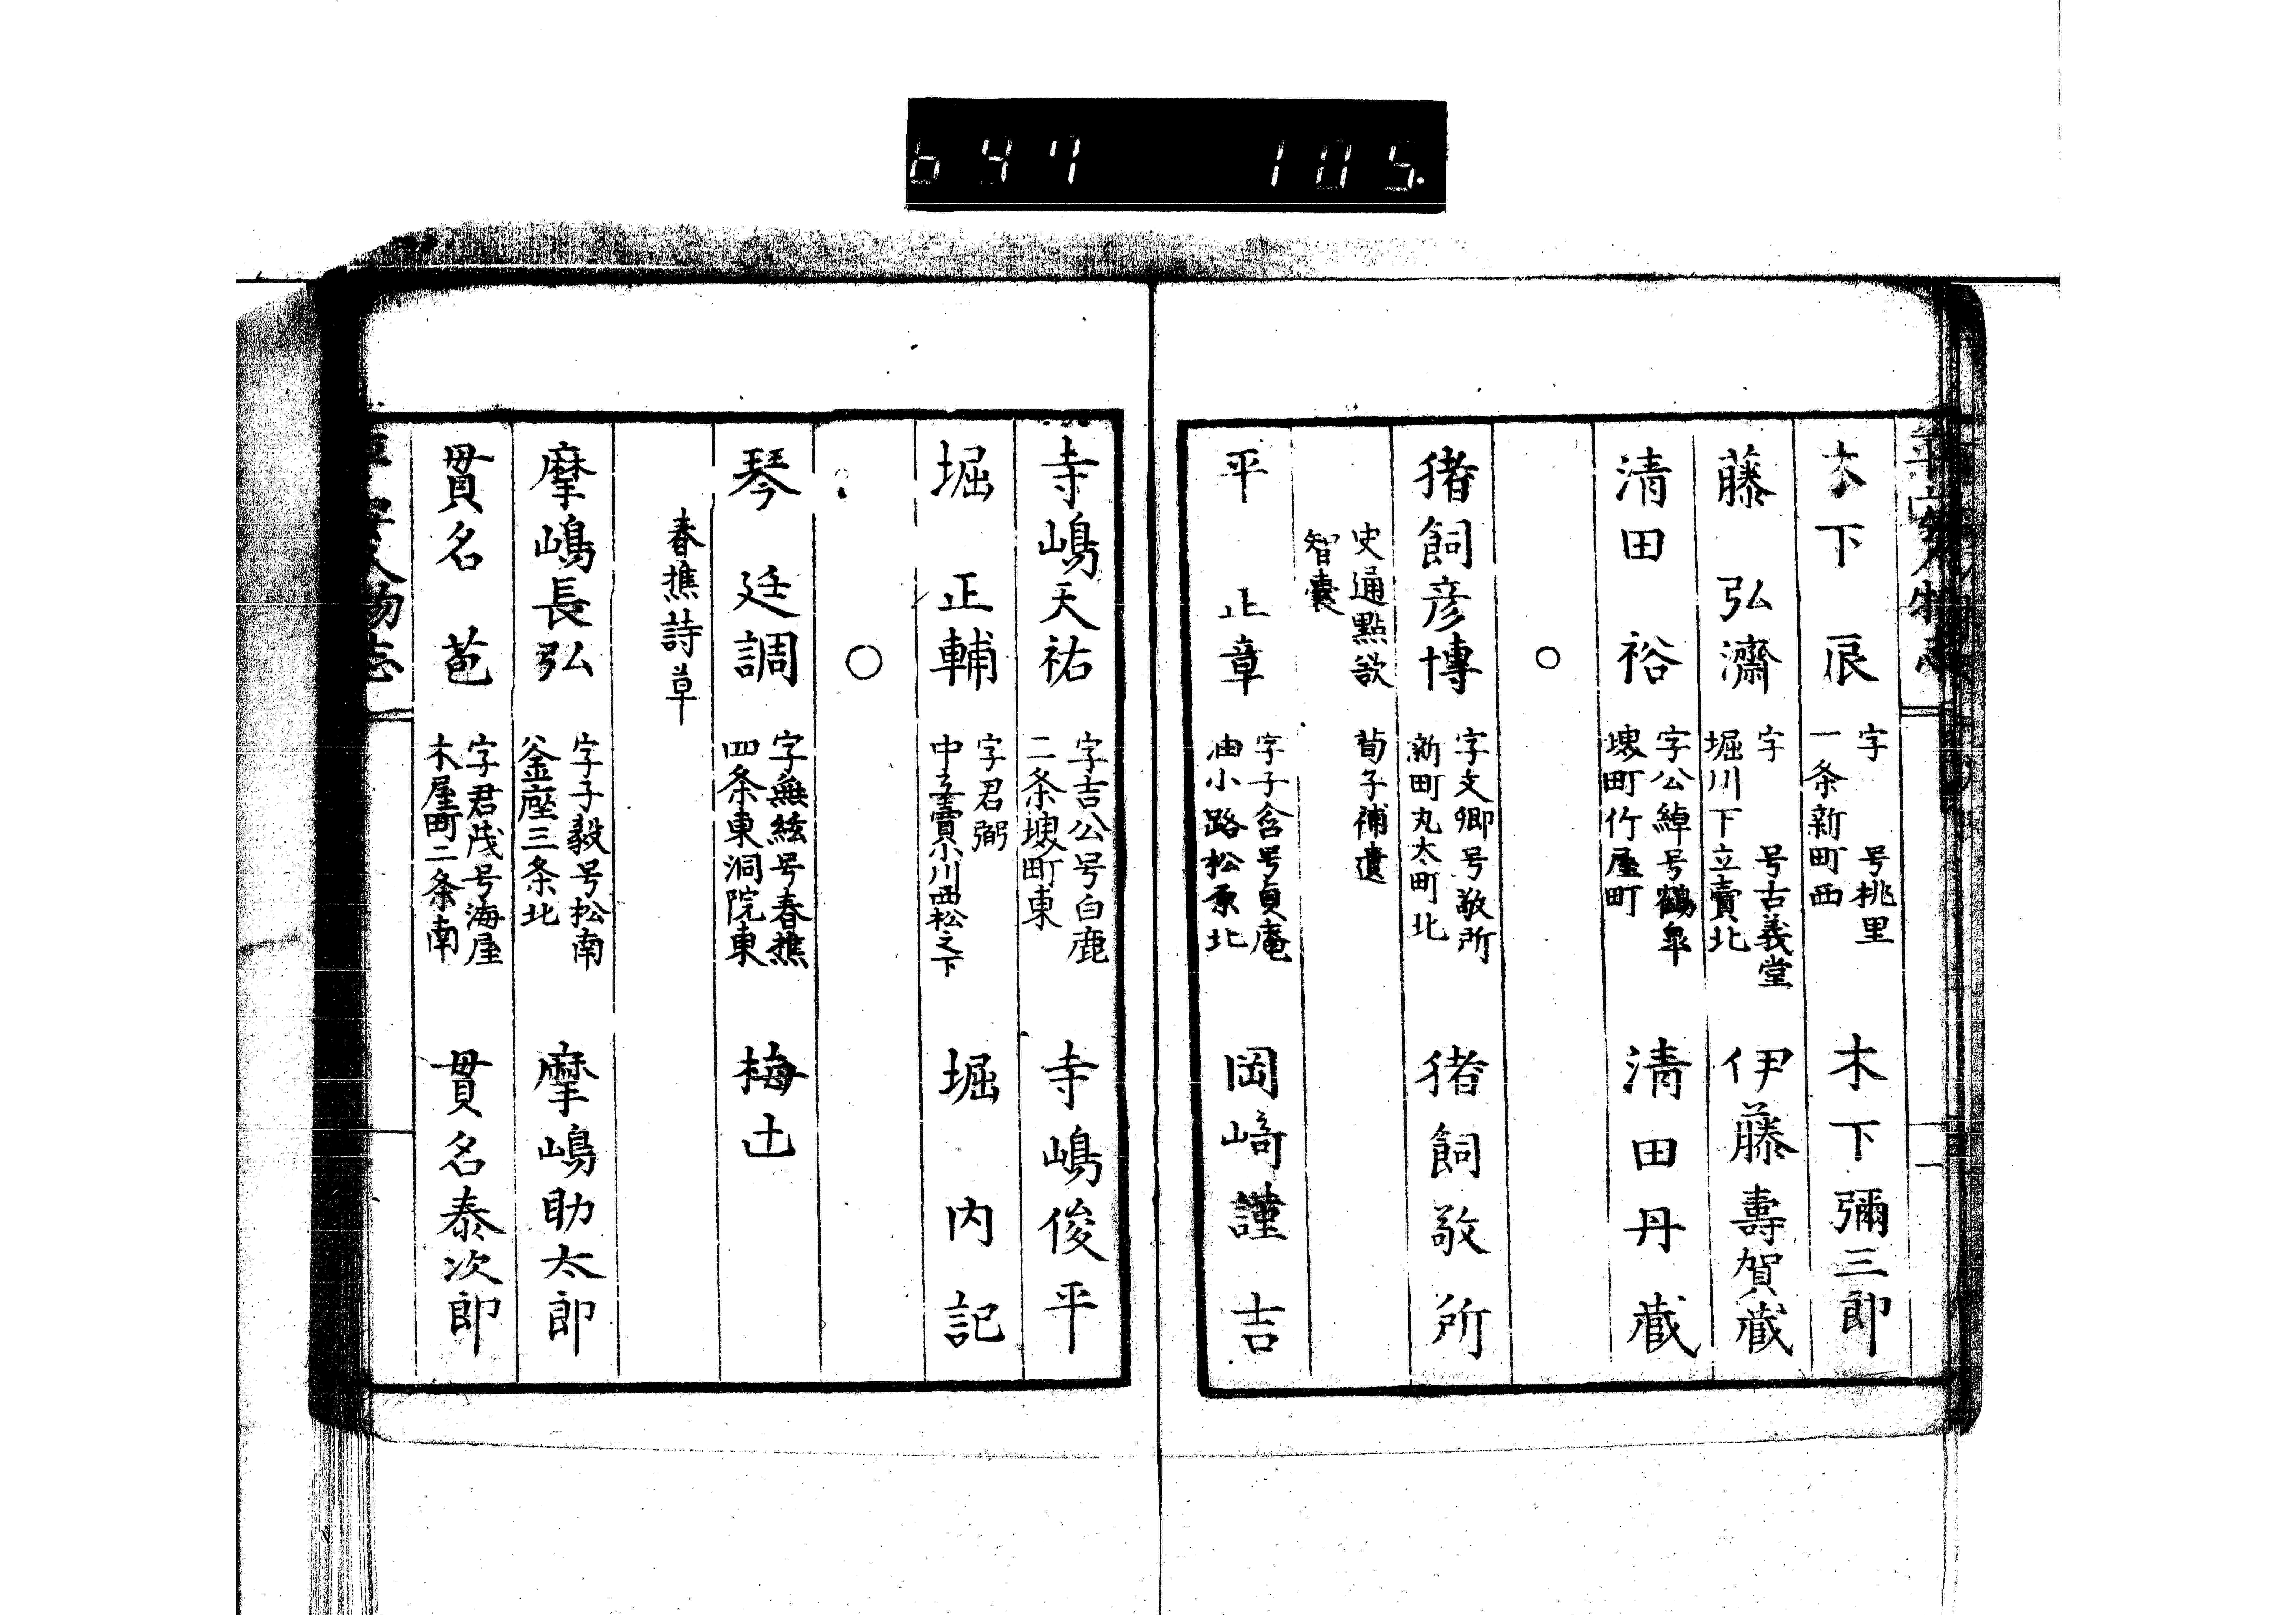 647 105.
平安人物志
木下 辰 字 号桃里 一条新町西 木下彌三郎
藤 弘濟 字 号古義堂 堀川下立賣北 伊藤壽賀蔵
清田 裕 字公綽号鶴皐 堺町竹屋町 清田丹蔵
○
猪飼彦博 字文卿号敬所 新町丸太町北 猪飼敬所
史通點欤 荀子補遺
智囊
平 止章 字子含号貞庵 油小路松原北 岡﨑謹吉
寺嶋天祐 字吉公号白鹿 二条堺町東 寺嶋俊平
堀 正輔 字君弼 中立賣小川西松之下 堀内記
○
琴 廷調 字無絃号春樵 四条東洞院東 梅辻
春樵詩草
摩嶋長弘 字子毅号松南 釜座三条北 摩嶋助太郎
貫名 苞 字君茂号海屋 木屋町二条南 貫名泰次郎
平安人物志